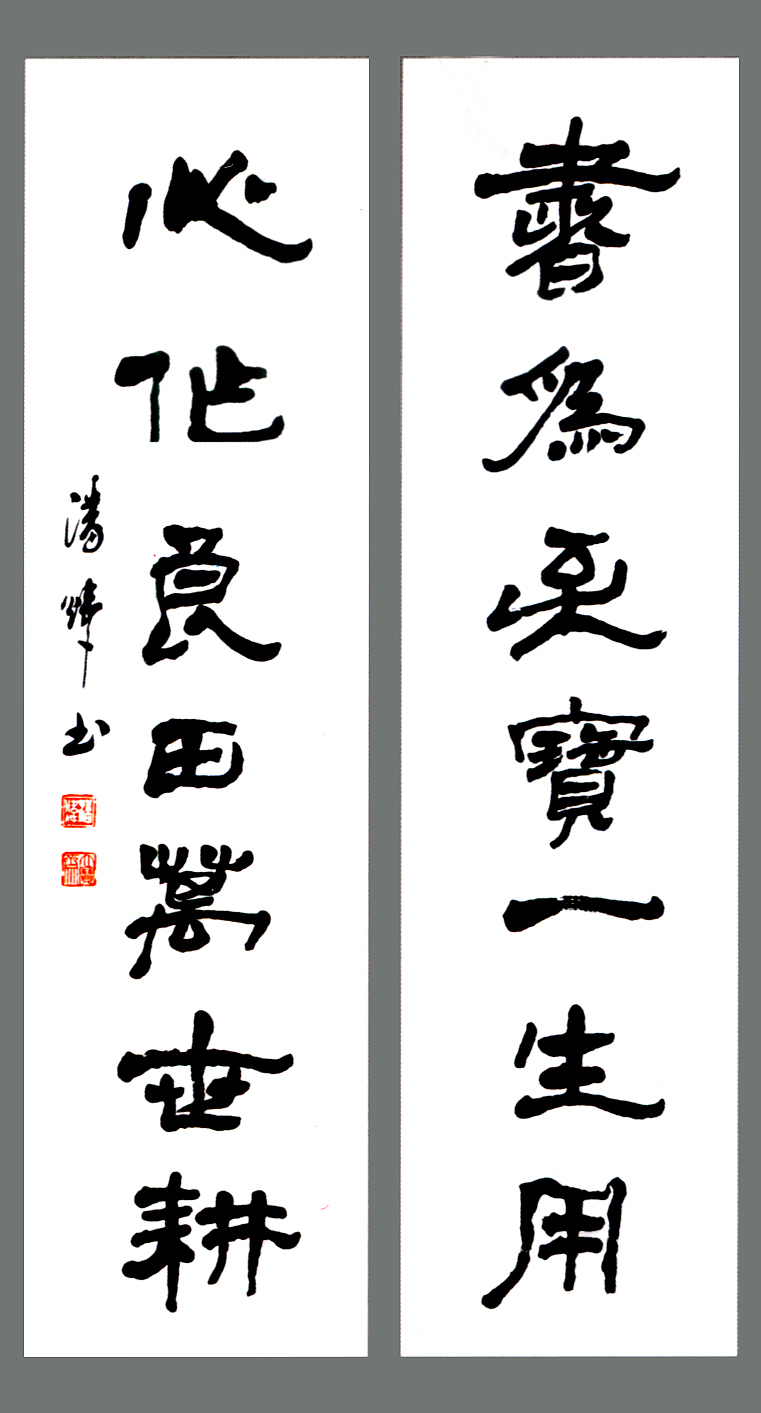 書為至寶一生用
心作良田萬世耕
潘 书